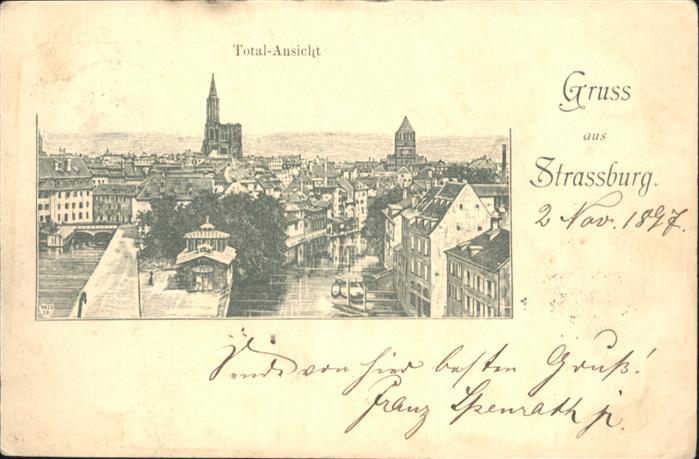 Total-Ansicht
Gruss
aus
Strassburg.
2 Nov. 1897.
Sende von hier besten Gruß!
Franz Spenrath jr.